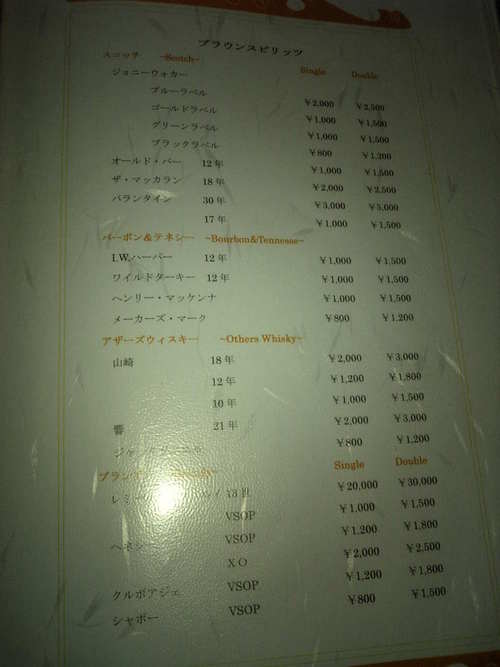 ブラウンスピリッツ
スコッチ ~Scotch~ Single Double
ジョニーウォカー
ブルーラベル ¥2,000 ¥2,500
ゴールドラベル ¥1,000 ¥1,500
グリーンラベル ¥1,000 ¥1,500
ブラックラベル ¥800 ¥1,200
オールド・パー 12年 ¥1,000 ¥1,500
ザ・マッカラン 18年 ¥2,000 ¥2,500
バランタイン 30年 ¥3,000 ¥5,000
17年 ¥1,000 ¥1,500
バーボン&テネシー ~Bourbon&Tennesse~
I.W.ハーパー 12年 ¥1,000 ¥1,500
ワイルドターキー 12年 ¥1,000 ¥1,500
ヘンリー・マッケンナ ¥1,000 ¥1,500
メーカーズ・マーク ¥800 ¥1,200
アザーズウィスキー ~Others Whisky~
山崎 18年 ¥2,000 ¥3,000
12年 ¥1,200 ¥1,800
10年 ¥1,000 ¥1,500
響 21年 ¥2,000 ¥3,000
¥800 ¥1,200
Single Double
13世 ¥20,000 ¥30,000
VSOP ¥1,000 ¥1,500
VSOP ¥1,200 ¥1,800
XO ¥2,000 ¥2,500
クルボアジェ VSOP ¥1,200 ¥1,800
シャボー VSOP ¥800 ¥1,500